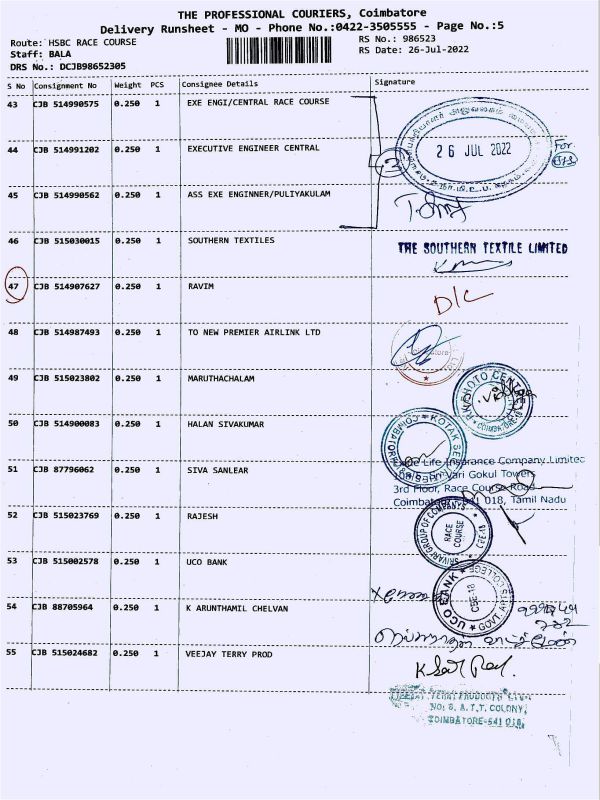 THE PROFESSIONAL COURIERS, Coimbatore
Delivery Runsheet - MO - Phone No.:0422-3505555 - Page No.:5
Route: HSBC RACE COURSE RS No.: 986523
Staff: BALA RS Date: 26-Jul-2022
DRS No.: DCJB98652305
S No Consignment No Weight PCS Consignee Details Signature
43 CJB 514990575 0.250 1 EXE ENGI/CENTRAL RACE COURSE
26 JUL 2022
For
44 CJB 514991202 0.250 1 EXECUTIVE ENGINEER CENTRAL
3
45 CJB 514990562 0.250 1 ASS EXE ENGINNER/PULIYAKULAM
46 CJB 515030015 0.250 1 SOUTHERN TEXTILES
THE SOUTHERN TEXTILE LIMITED
47 CJB 514907627 0.250 1 RAVIM
D/C
48 CJB 514987493 0.250 1 TO NEW PREMIER AIRLINK LTD
49 CJB 515023802 0.250 1 MARUTHACHALAM
PHOTO CENTRE
50 CJB 514900083 0.250 1 HALAN SIVAKUMAR
KOTAK
Life Insurance Company Limited
51 CJB 87796062 0.250 1 SIVA SANLEAR
Vari Gokul Towers
3rd Floor, Race Course Road
018, Tamil Nadu
52 CJB 515023769 0.250 1 RAJESH
SRIVARI GROUP OF COMPANYS
RACE COURSE
CBE-18
53 CJB 515002578 0.250 1 UCO BANK
UCO BANK
GOVT. ARTS COLLEGE
CBE-18
54 CJB 88705964 0.250 1 K ARUNTHAMIL CHELVAN
55 CJB 515024682 0.250 1 VEEJAY TERRY PROD
NO: 8, A.T.T. COLONY,
COIMBATORE-641 018.